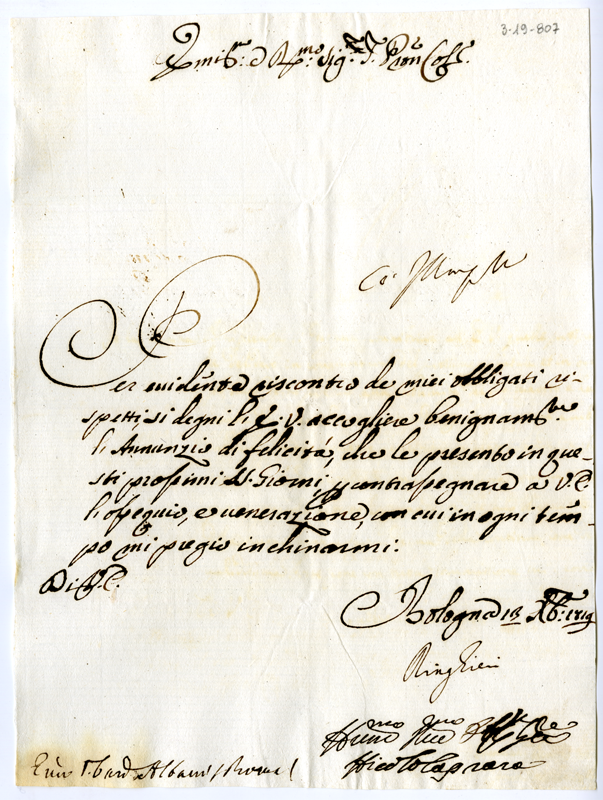 3-19-807
Em.mo e R.mo Sig.r P.ron Col.mo
Per euidente riscontro de miei obbligati ri-
spetti, si degni l'E. V. accogliere benignam.te
l'Annunzio di felicità, che le presento in que-
sti prossimi SS. Giorni, p contrasegnare a V. E.
l'ossequio, e uenerazione, con cui in ogni tem-
po mi pregio inchinarmi.
Di V. E.
Bologna 13 Xb.e
Ringhieri
Hum.mo
Nicolò Caprara
Em. S. Card. Albani / Roma /